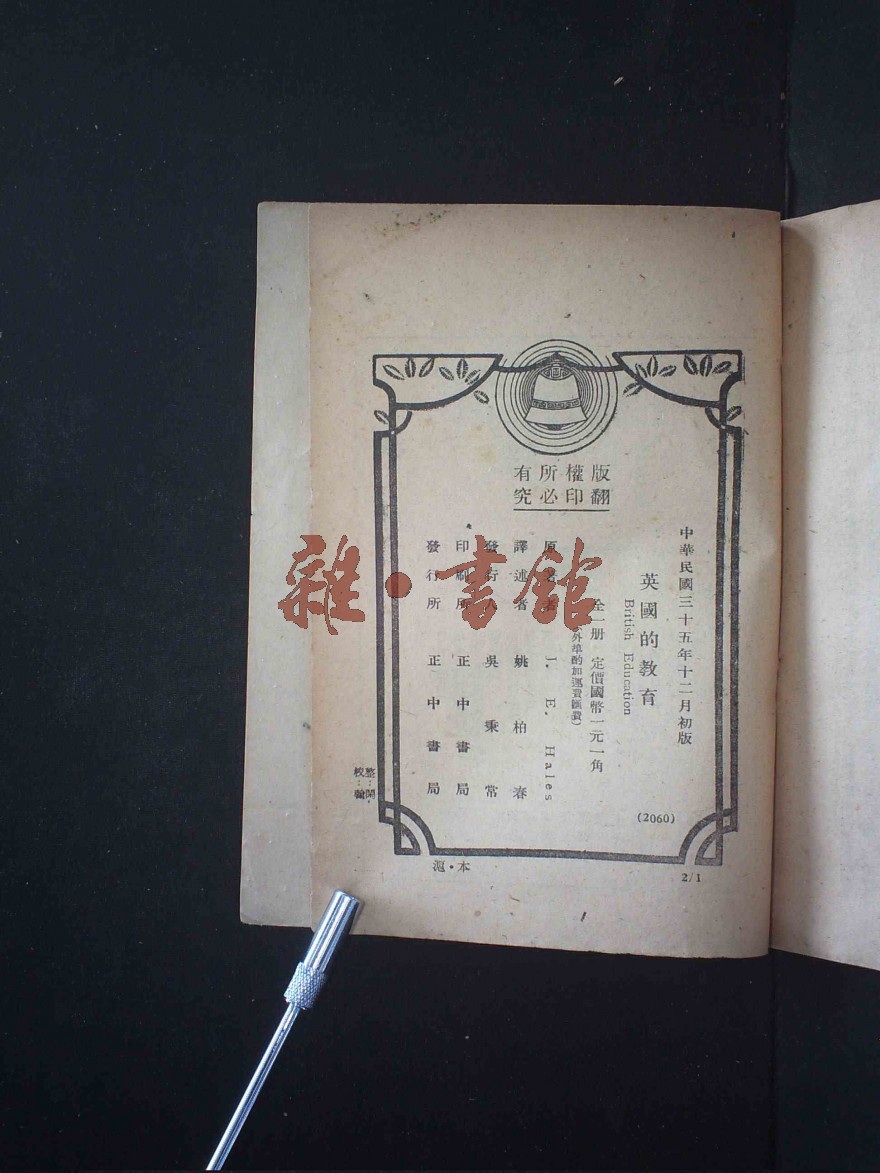 版權所有
翻印必究
中華民國三十五年十二月初版
英國的教育
British Education
全一册 定價國幣一元一角
外埠酌加運費匯費)
原著者 I. E. Hales
譯述者 姚柏春
發行人 吳秉常
印刷所 正中書局
發行所 正中書局
(2060)
滬·本
2/1
雜·書館